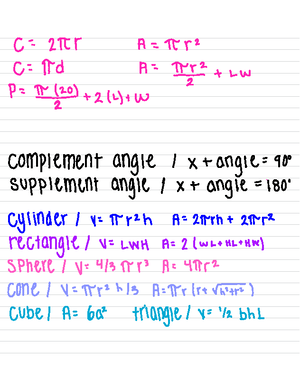 C = 2πr A = πr²
C = πd A = πr²/2 + LW
P = π(20)/2 + 2(L) + W
complement angle / x + angle = 90°
supplement angle / x + angle = 180°
cylinder / V = πr²h A = 2πrh + 2πr²
rectangle / V = LWH A = 2(WL+HL+HW)
sphere / V = 4/3 πr³ A = 4πr²
cone / V = πr² h/3 A = πr(r+√h²+r²)
cube / A = 6a² triangle / V = ½ bhL